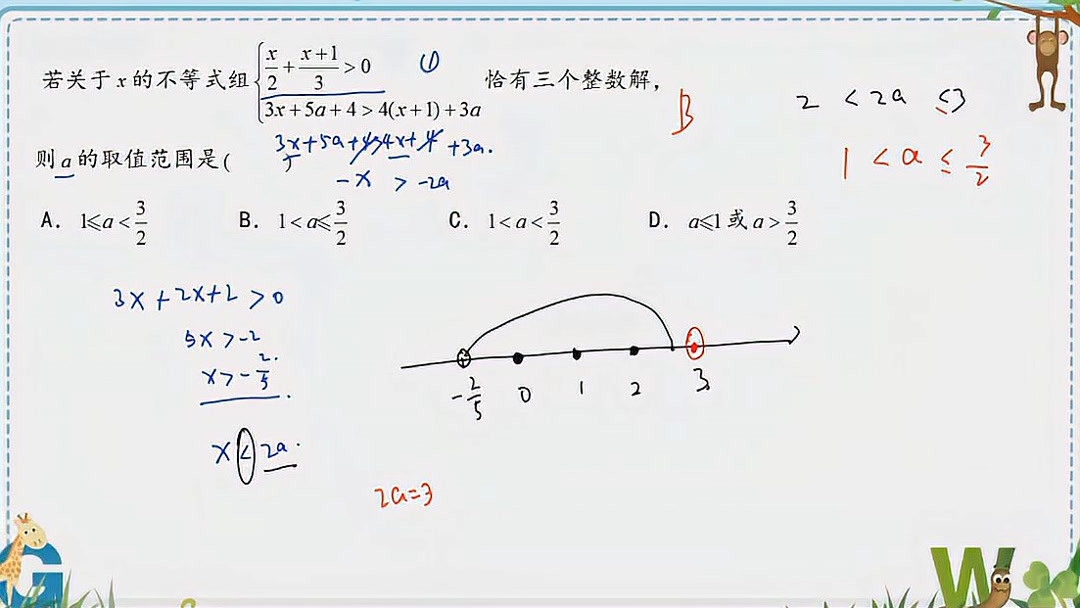 若关于x的不等式组 { x/2 + (x+1)/3 > 0 ① 恰有三个整数解，
3x+5a+4 > 4(x+1)+3a
则a的取值范围是(   )
3x+5a+4>4x+4+3a.
-x > -2a
B
2 < 2a ≤ 3
1 < a ≤ 3/2
A. 1⩽a<3/2   B. 1<a⩽3/2   C. 1<a<3/2   D. a⩽1 或 a>3/2
3x+2x+2>0
5x>-2
x>-2/5.
x<2a.
-2/5 0 1 2 3
2a=3
G
W